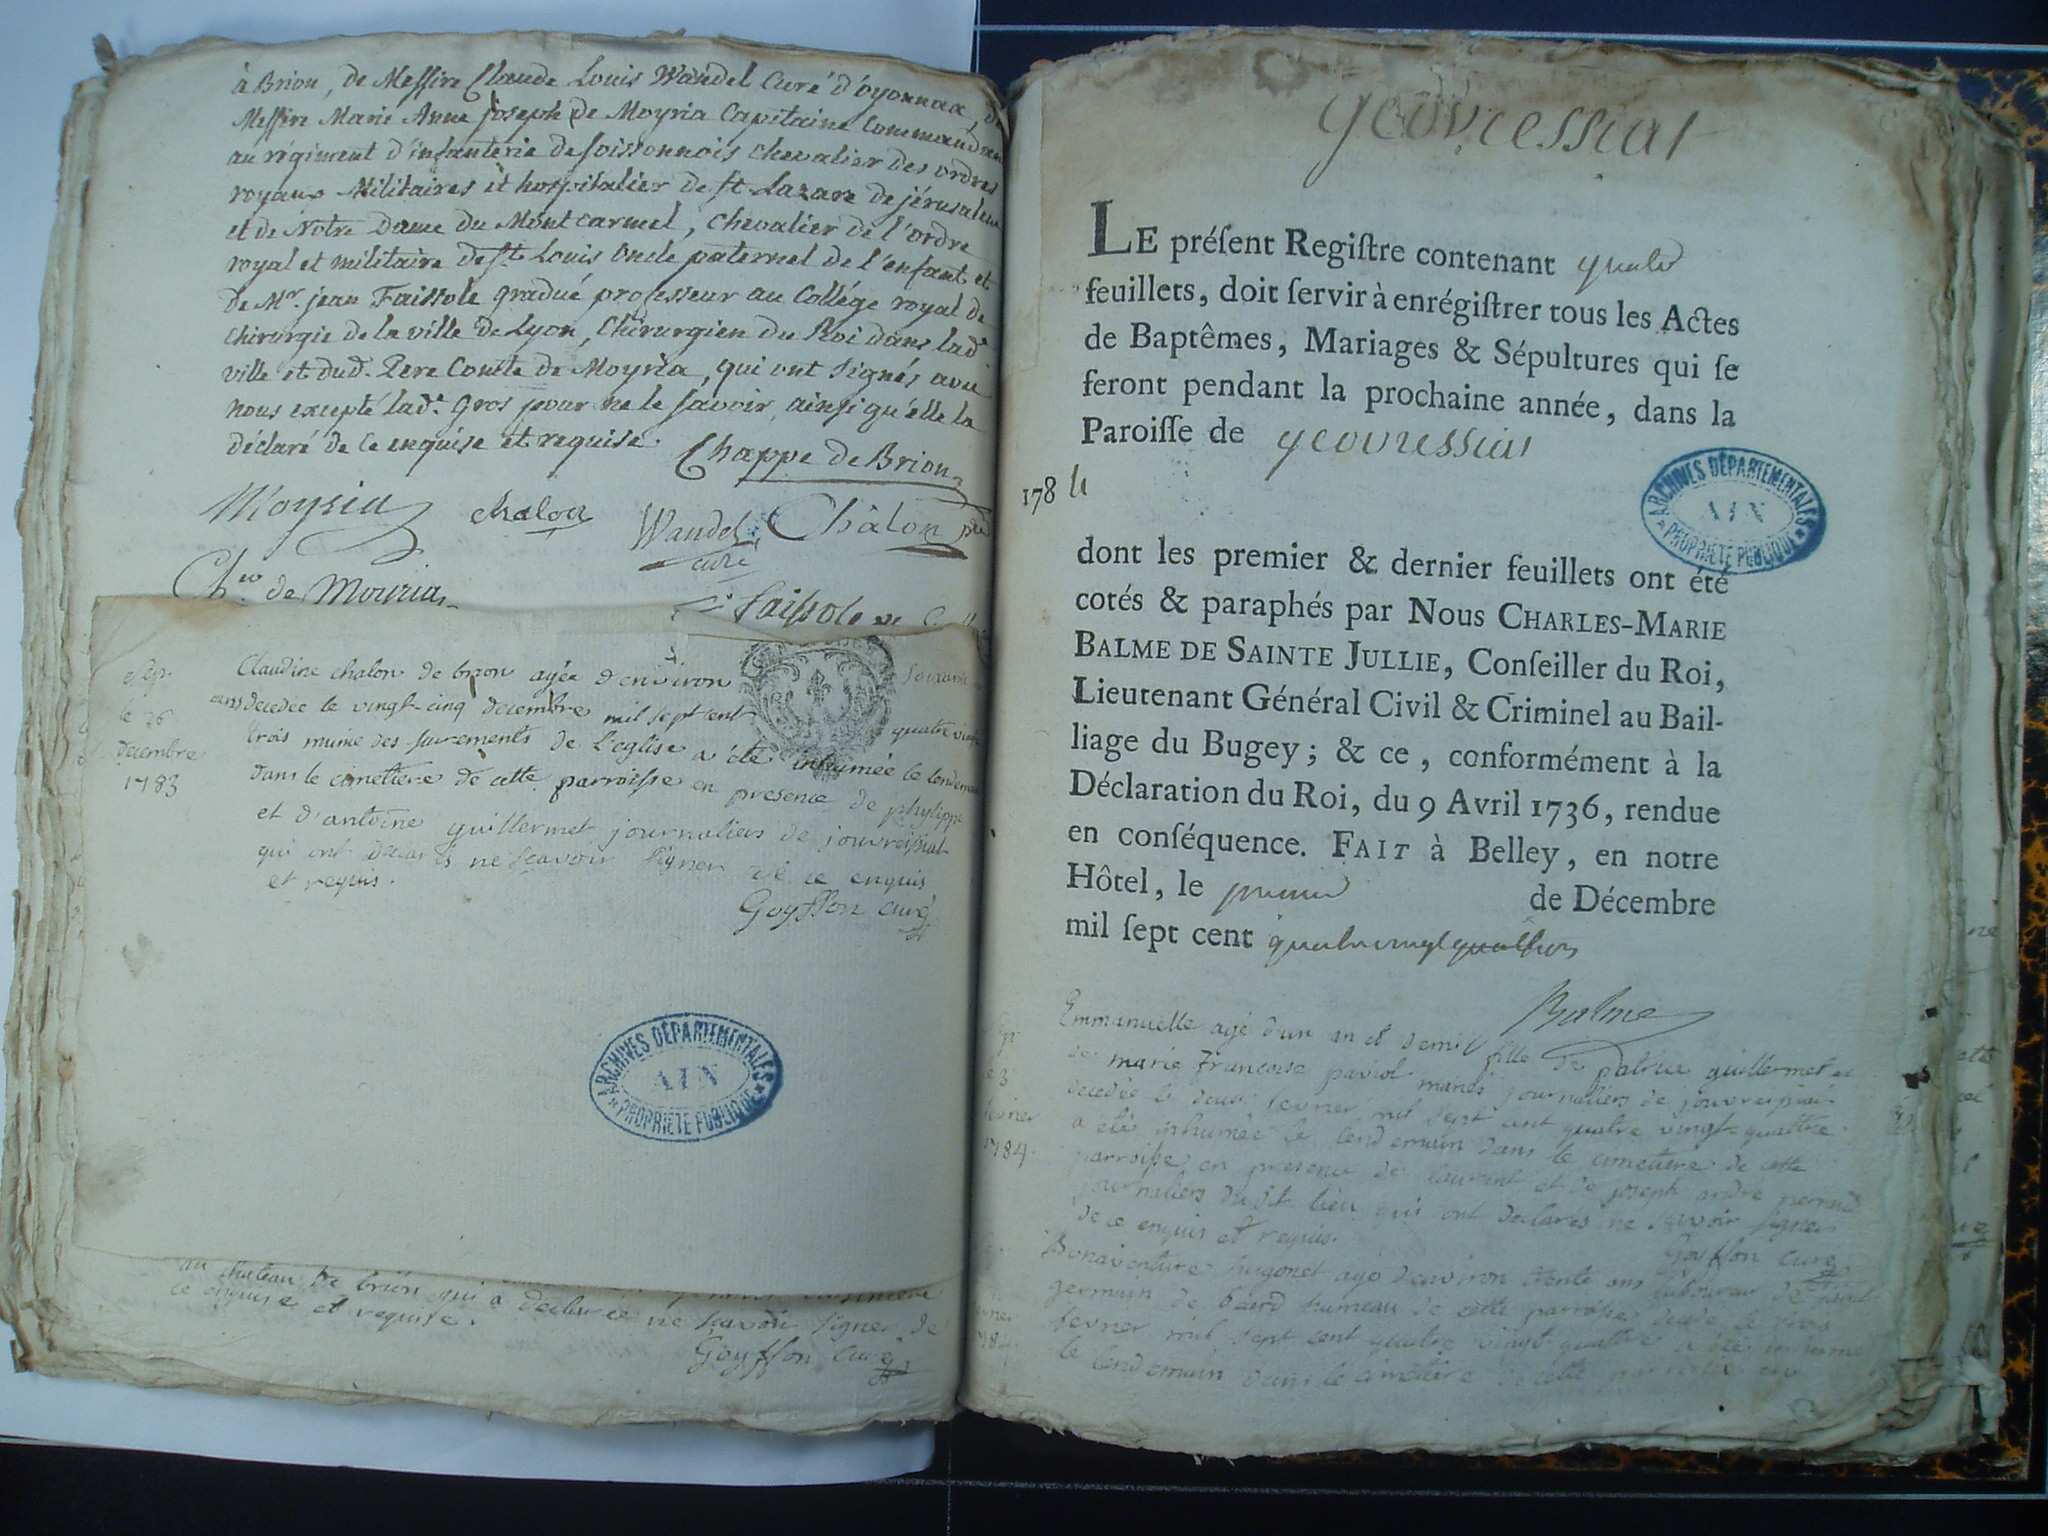 à Brion, de Messire Claude Louis Wandel Curé d'oyonnax, de
Messire Marie Anne joseph de Moyria Capitaine Commandant
au régiment d'infanterie de soissonnois chevalier des ordres
royaux Militaires et hospitalier de st Lazare de jérusalem
et de Notre Dame du Mont carmel, Chevalier de l'ordre
royal et militaire de st Louis Oncle paternel de l'enfant et
de Mr. jean Faissole gradué professeur au Collége royal de
Chirurgie de la ville de Lyon, Chirurgien du Roi dans lade
ville et dud. Pere Comte de Moyria, qui ont signés avec
nous excepté lade. Gros pour ne le savoir, ainsi qu'elle la
déclaré de ce enquise et requise.
Chappe de Brion
Moyria chalon Wandel curé Châlon
Chev de Moyria faissole
Sep.
le 26
decembre
1783
Claudine chalon de brion agée d'environ soixante
ans decedée le vingt-cinq decembre mil sept cent quatre vingt
trois munie des sacrements de l'eglise a été inhumée le lendemain
dans le cimetiere de cette parroisse en presence de phylippe
et d'antoine guillermet journaliers de jouvressiat
qui ont declarés ne scavoir signer de ce enquis
et requis.
Goyffon curé
ARCHIVES DÉPARTEMENTALES
AIN
PROPRIÉTÉ PUBLIQUE
au chateau de brion qui a declarée ne scavoir signer de
ce enquise et requise.
Goyffon curé
geovressiat
LE préſent Regiſtre contenant quatre
feuillets, doit ſervir à enrégiſtrer tous les Actes
de Baptêmes, Mariages & Sépultures qui ſe
feront pendant la prochaine année, dans la
Paroiſſe de geovressiat
ARCHIVES DÉPARTEMENTALES
AIN
PROPRIÉTÉ PUBLIQUE
178 4
dont les premier & dernier feuillets ont été
cotés & paraphés par NOUS CHARLES-MARIE
BALME DE SAINTE JULLIE, Conſeiller du Roi,
Lieutenant Général Civil & Criminel au Bail-
liage du Bugey; & ce, conformément à la
Déclaration du Roi, du 9 Avril 1736, rendue
en conſéquence. FAIT à Belley, en notre
Hôtel, le premier de Décembre
mil ſept cent quatre vingt
Balme
Sep.
le 3
fevrier
1784.
Emmanuelle agé d'un an et demi fille de patrice guillermet et
de marie Françoise paviot mariés journaliers de jouvressiat
decedée le deux fevrier mil sept cent quatre vingt quattre
a eté inhumée le lendemain dans le cimettiere de cette
parroisse en presence de laurent et de joseph andré
journaliers dudit lieu qui ont declarés ne scavoir signer
de ce enquis et requis.
Goyffon curé
Bonaventure hugonet agé d'environ trente ans laboureur de saint
germain de de cette parroisse decedé le trois
fevrier mil sept cent quatre vingt quattre a eté inhumé
le lendemain dans le cimettiere de cette parroisse en